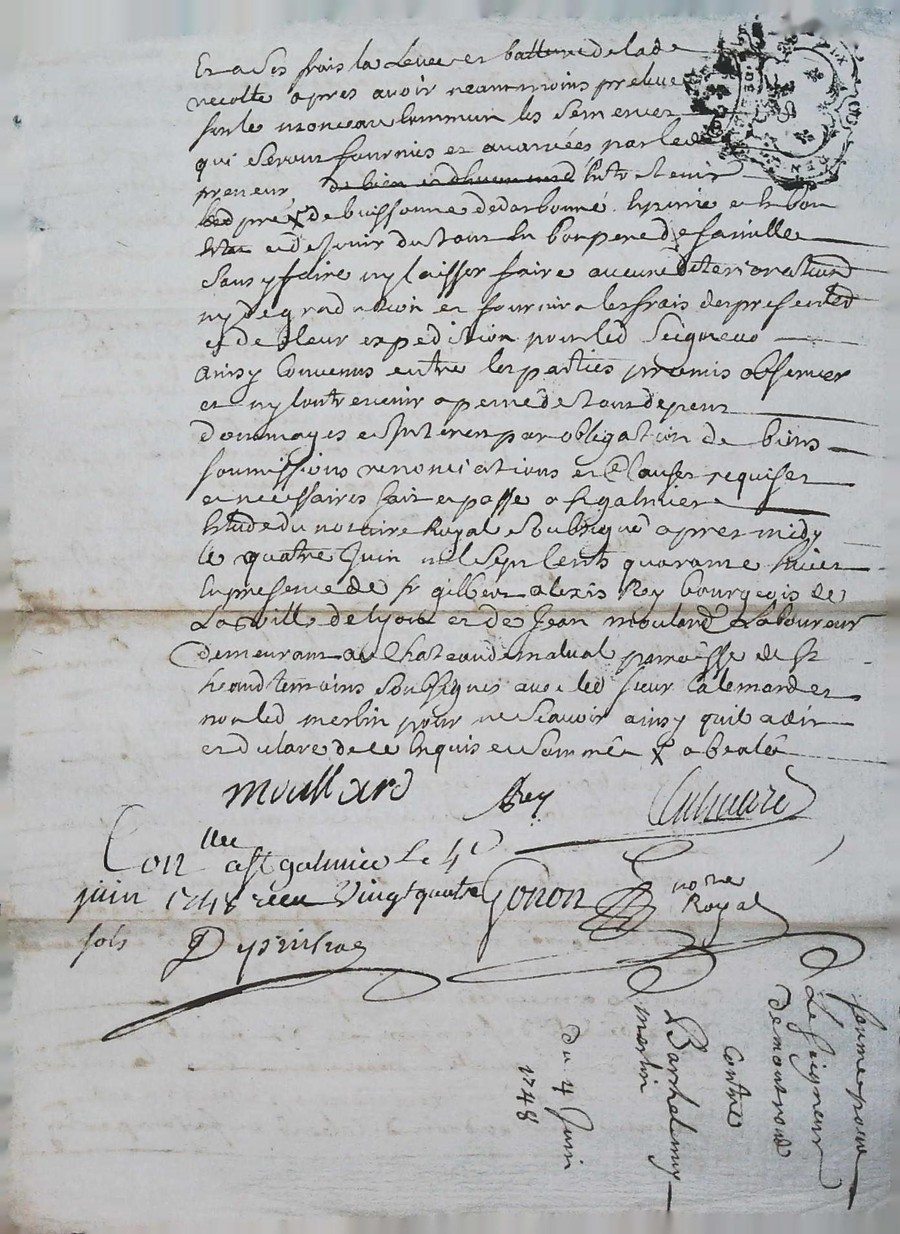 Et a ses frais la Levee et batture de lade
recolte apres avoir neantmoins preleve
sur le monceau commun les semences
qui seront fournies et avancées par led
preneur de bien et duement Entretenir
led pré de buissonne
et de Jouir du tout En bon pere de famille
sans y faire ny laisser faire aucune deterioration
ny degradation et fournir a les frais des presentes
et de leur expedition pour led Seigneur
ainsy Convenus entre les parties promis observer
et ny Contrevenir a peine de tous depens
dommages et Interets par obligation de biens
soumissions renonciations et Clauses requises
et necessaires fait et passé a St galmier
Etude du notaire Royal Soubsigné apres midy
le quatre Juin mil Sept Cents quarante huict
En presence de Sr gilbert alexis Rey bourgeois de
La ville de Lyon et de Jean moulard Laboureur
demeurant au Chateau de malval paroisse de St
heand temoins Soussignés avec led sieur Calemard et
non led merlin pour ne Scavoir ainsy quil a dit
et declaré de ce Enquis et Sommé
moullard Rey Calemard
Conlle a St galmier Le 4e
juin 1748 recu Vingt quatre
sols
Gonon nore
Royal
ferme pour
Le Seigneur
de montrond
Contre
Barthelemy
merlin
du 4 Juin
1748